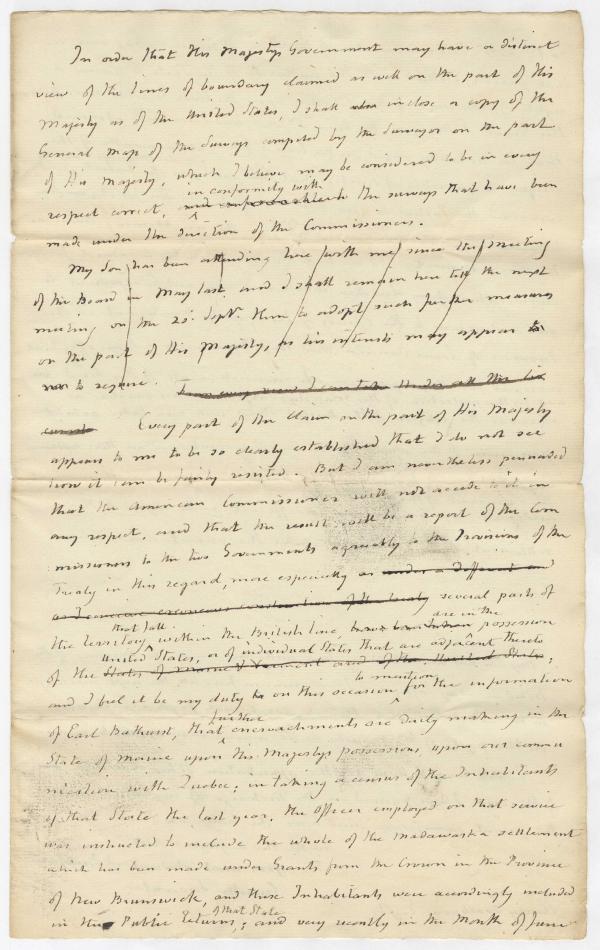 In order that His Majestys Government may have a distinct
view of the lines of boundary claimed as well on the part of His
Majesty as of the United States, I shall inclose a copy of the
General Map of the Surveys compiled by the Surveyor on the part
of His Majesty, which I believe may be considered to be in every
in conformity with
respect correct, and the surveys that have been
made under the direction of the Commissioners.
My Son has been attending here with me since the meeting
of the Board in May last and I shall remain here till the next
meeting on the 25 Septr. then to adopt such further measures
on the part of His Majesty, as his interests may appear to
to require.
Every part of the Claim on the part of His Majesty
appears to me to be so clearly established that I do not see
how it can be fairly resisted. But I am nevertheless persuaded
that the American Commissioner will not accede to it in
any respect, and that the result will be a report of the Com
missioners to the two Governments agreeably to the Provisions of the
Treaty in this regard, more especially as under a different and
erroneous construction of the treaty several parts of
that fall are in the
the territory within the British line, possession
United States, or of individual States that are adjacent thereto
of the States of Maine & Vermont and of the United States;
to mention
and I feel it be my duty on this occasion for the information
further
of Earl Bathurst, that encroachments are daily making in the
State of Maine upon His Majestys possessions, upon our commu
nication with Quebec; in taking a census of the Inhabitants
of that State the last year, the Officer employed on that service
was instructed to include the whole of the Madawaska settlement
which has been made under Grants from the Crown in the Province
of New Brunswick, and these Inhabitants were accordingly included
of that State
in the Public Returns; and very recently in the Month of June